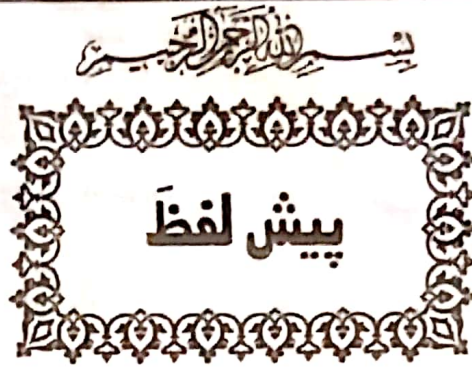 بسم الله الرحمن الرحیم
پیش لفظَ